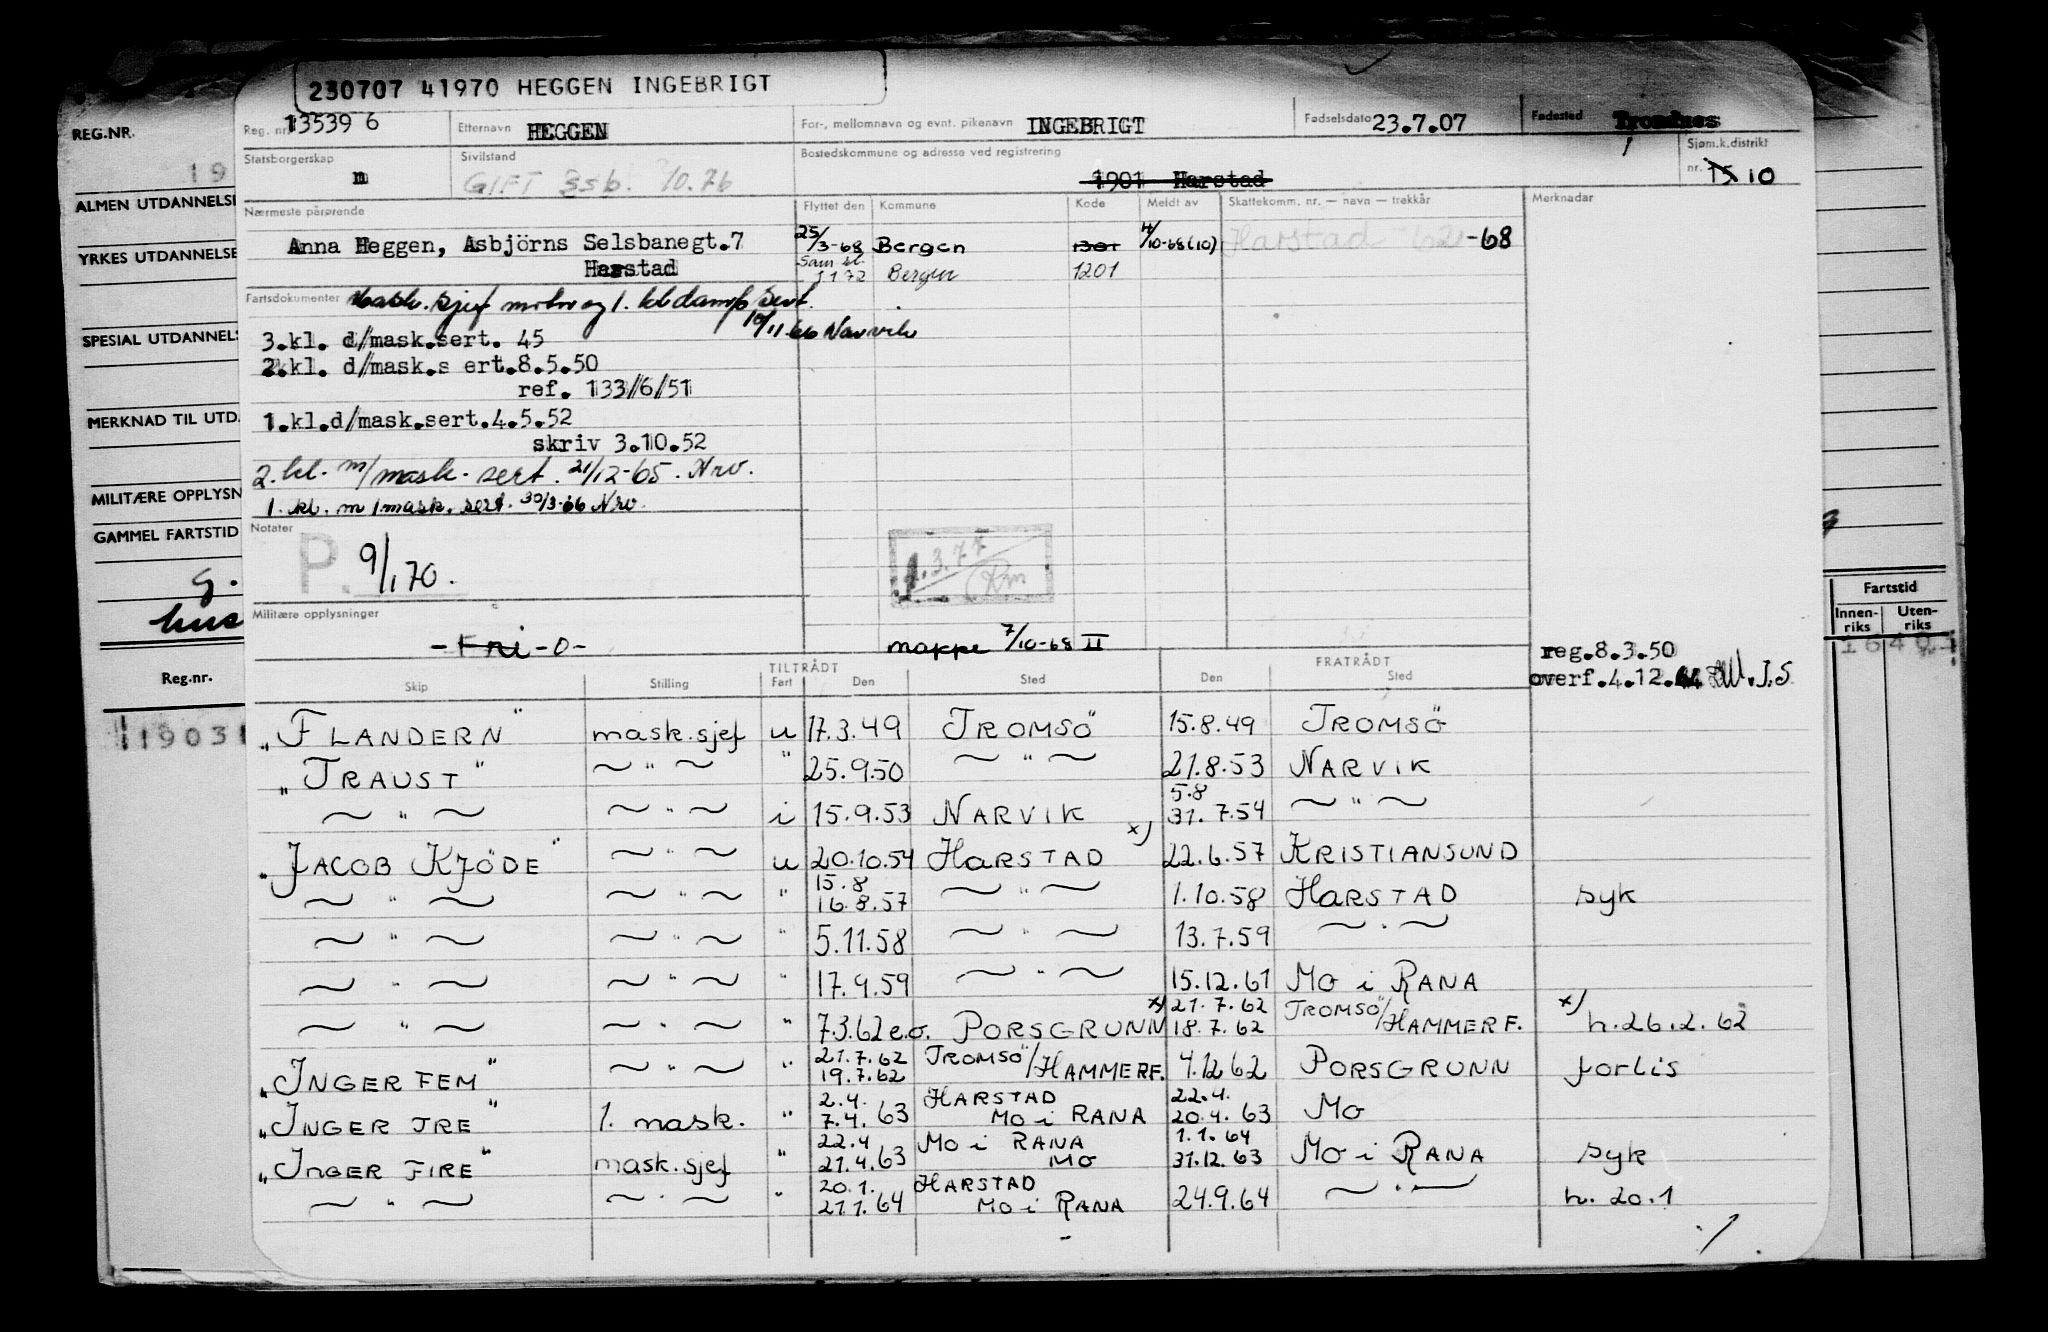 230707 41970 HEGGEN INGEBRIGT
REG.NR.
Reg. nr. 13539 6
Etternavn HEGGEN
For-, mellomnavn og evnt. pikenavn INGEBRIGT
Fødselsdato 23.7.07
Fødested Trondnes
19
Statsborgerskap n
Sivilstand GIFT
Bostedskommune og adresse ved registrering 1901 Harstad
Sjøm.k.distrikt nr. 15 10
ALMEN UTDANNELSE
Nærmeste pårørende
Flyttet den Kommune Kode Meldt av Skattekomm. nr. — navn — trekkår Merknader
Anna Heggen, Asbjörns Selsbanegt.7
Harstad
25/3-68 Bergen 1301 4/10-68(10) Harstad -68
1 1 72 Bergen 1201
YRKES UTDANNELSE
Fartsdokumenter Mask. sjef motor og 1. kl damp sert.
10/11.66 Narvik
3.kl. d/mask.sert. 45
2.kl. d/mask.s ert.8.5.50
ref. 133/6/51
1.kl.d/mask.sert.4.5.52
skriv 3.10.52
2. kl. m/mask. sert. 21/12-65. Nrv.
1. kl. m/mask. sert. 30/3-66 Nrv.
SPESIAL UTDANNELS
MERKNAD TIL UTD.
MILITÆRE OPPLYSN
GAMMEL FARTSTID
Notater
P. 9/1 70.
1.3.77
Rm
Militære opplysninger
-Fri-0-
mappe 7/10-68 II
reg.8.3.50
overf.4.12.
Fartstid
Innen-riks Uten-riks
Reg.nr.
19031
TILTRÅDT FRATRÅDT
Skip Stilling Fart Den Sted Den Sted
"FLANDERN" mask.sjef u 17.3.49 TROMSÖ 15.8.49 TROMSÖ
"TRAUST" ~ " ~ " 25.9.50 ~ " ~ 21.8.53 NARVIK
~ " ~ ~ " ~ i 15.9.53 NARVIK 5.8 31.7.54 ~ " ~
"JACOB KJÖDE" ~ " ~ u 20.10.54 HARSTAD x) 22.6.57 KRISTIANSUND
~ " ~ ~ " ~ " 15.8 16.8.57 ~ " ~ 1.10.58 HARSTAD syk
~ " ~ ~ " ~ " 5.11.58 ~ " ~ 13.7.59 ~ " ~
~ " ~ ~ " ~ " 17.9.59 ~ " ~ 15.12.61 MO i RANA
~ " ~ ~ " ~ " 7.3.62 e.o. PORSGRUNN x) 21.7.62 18.7.62 TROMSÖ/HAMMERF. x) h.26.2.62
"INGER FEM" ~ " ~ " 21.7.62 19.7.62 TROMSÖ/HAMMERF. 4.12 62 PORSGRUNN forlis
"INGER TRE" 1. mask. " 2.4. 7.4.63 HARSTAD MO i RANA 22.4. 20.4.63 MO
"INGER FIRE" mask.sjef " 22.4 21.4.63 MO i RANA MO 1.1.64 31.12.63 MO i RANA syk
~ " ~ ~ " ~ " 20.1. 21.1.64 HARSTAD MO i RANA 24.9.64 ~ " ~ h. 20.1